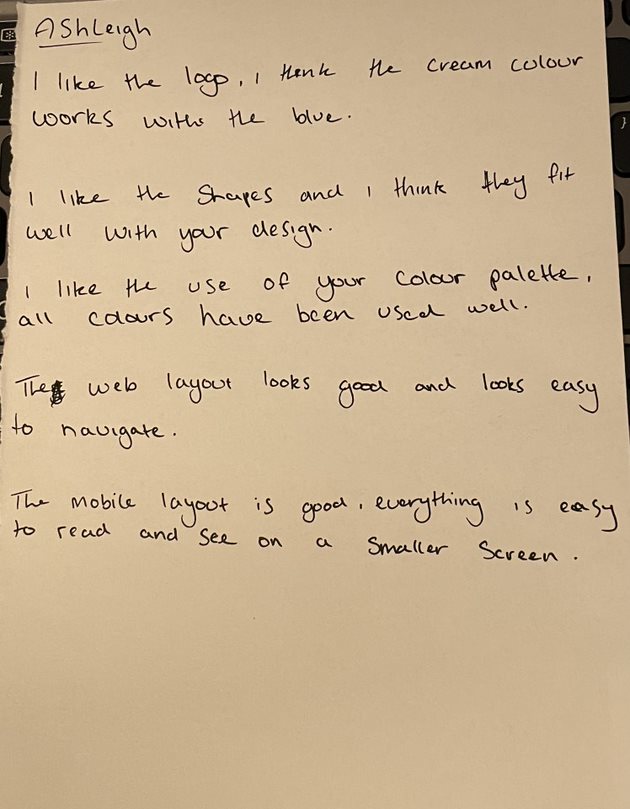 AShLeigh
I like the logo, I think the cream colour
works withs the blue.
I like the Shapes and I think they fit
well with your design.
I like the use of your colour palette,
all colours have been used well.
The web layout looks good and looks easy
to navigate.
The mobile layout is good, everything is easy
to read and see on a smaller screen.
}